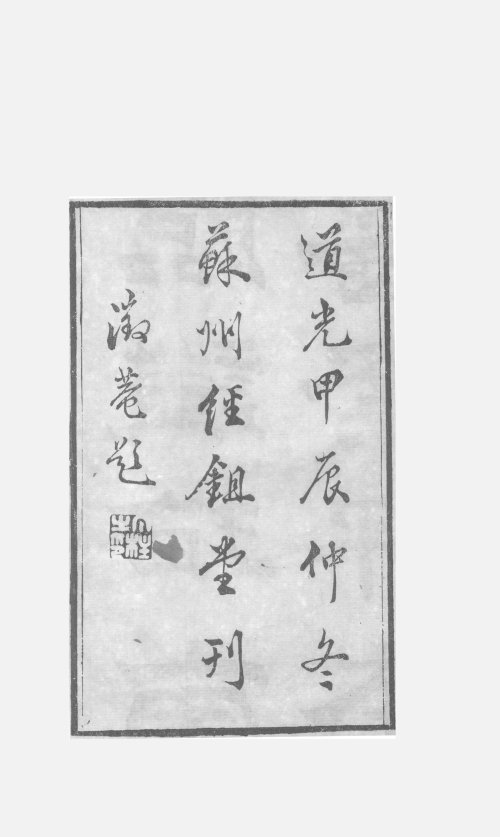 道光甲辰仲冬
蘇州經鉏堂刊
澂菴題